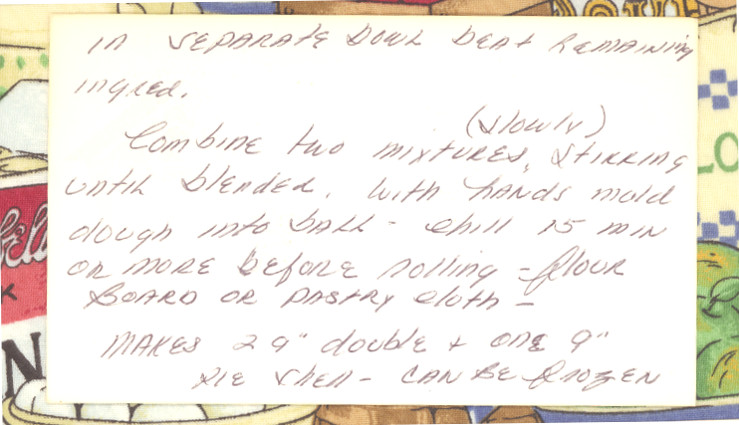 in separate bowl beat remaining
ingred.
(slowly)
Combine two mixtures, stirring
until blended. With hands mold
dough into ball - chill 15 min
or more before rolling - flour
board or pastry cloth -
Makes 2 9" double + one 9"
pie shell - can be frozen